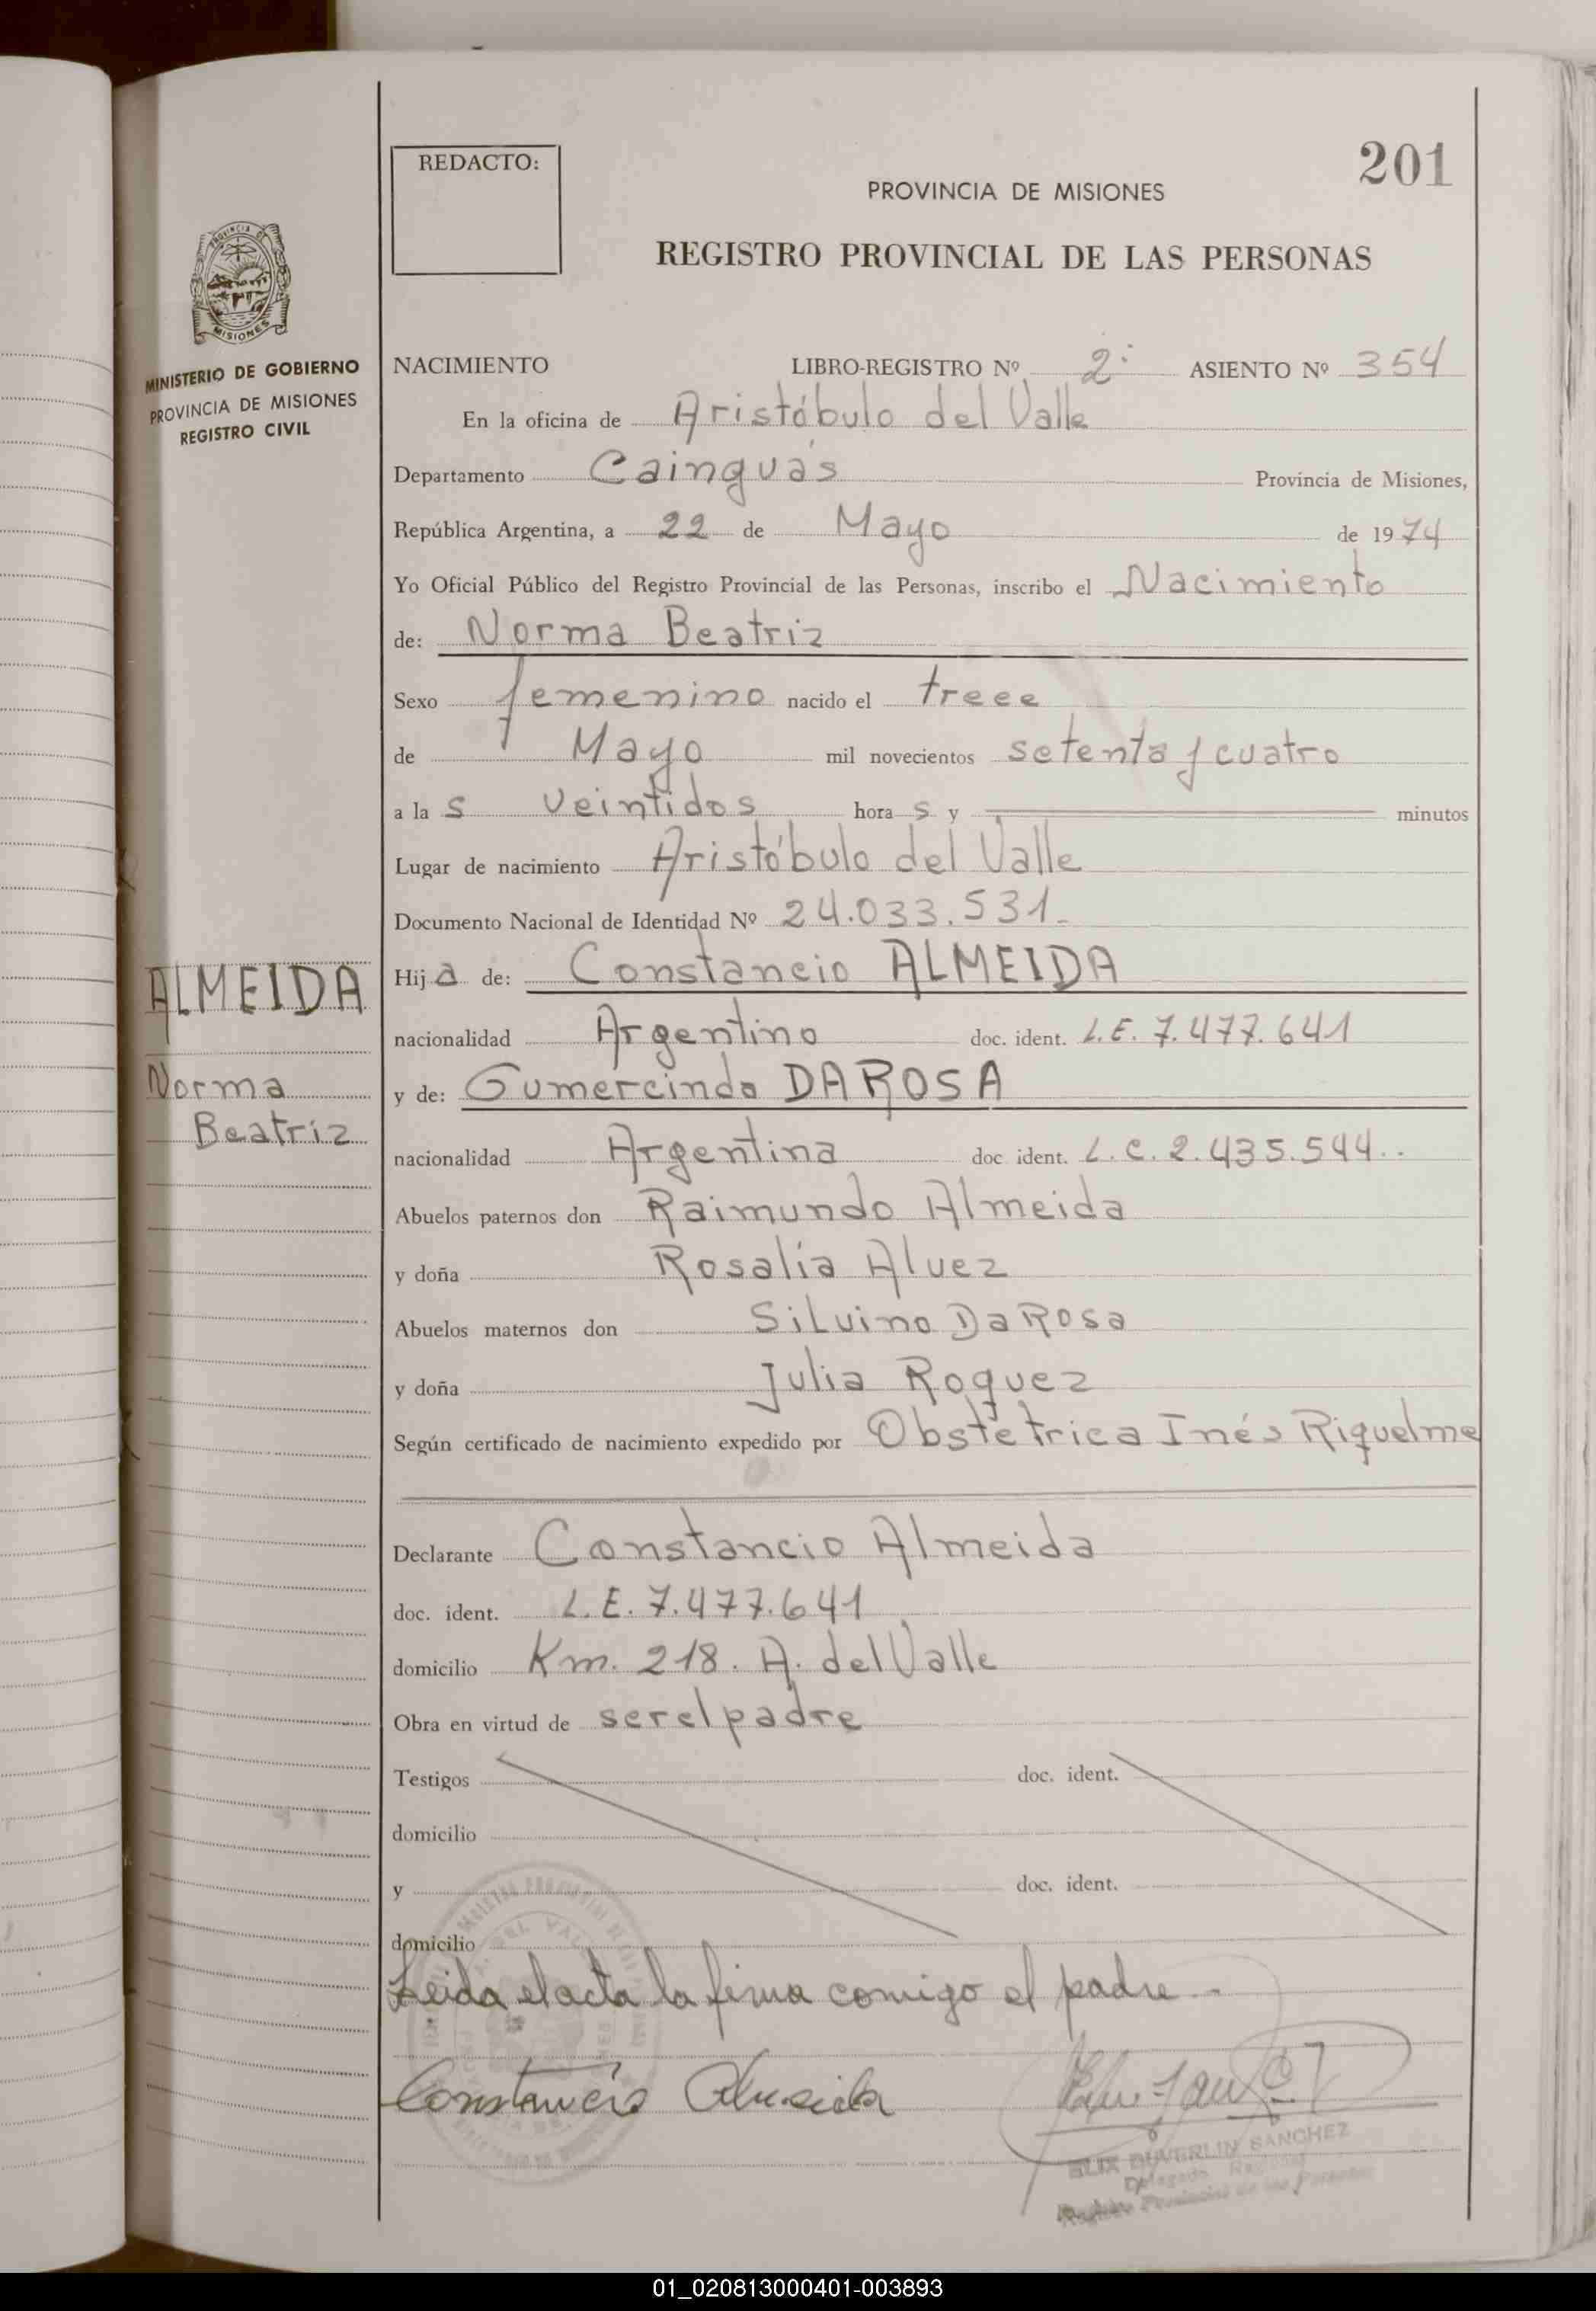 201
REDACTO:
PROVINCIA DE MISIONES
REGISTRO PROVINCIAL DE LAS PERSONAS
PROVINCIA DE
MISIONES
MINISTERIO DE GOBIERNO
PROVINCIA DE MISIONES
REGISTRO CIVIL
ALMEIDA
Norma
Beatriz
NACIMIENTO LIBRO-REGISTRO Nº 2º ASIENTO Nº 354
En la oficina de Aristóbulo del Valle
Departamento Cainguás Provincia de Misiones,
República Argentina, a 22 de Mayo de 1974
Yo Oficial Público del Registro Provincial de las Personas, inscribo el Nacimiento
de: Norma Beatriz
Sexo femenino nacido el trece
de Mayo mil novecientos setenta y cuatro
a las veintidos horas y minutos
Lugar de nacimiento Aristóbulo del Valle
Documento Nacional de Identidad Nº 24.033.531.-
Hija de: Constancio ALMEIDA
nacionalidad Argentino doc. ident. L.E. 7.477.641
y de: Gumercinda DA ROSA
nacionalidad Argentina doc. ident. L.C. 2.435.544..
Abuelos paternos don Raimundo Almeida
y doña Rosalía Alvez
Abuelos maternos don Silvino Da Rosa
y doña Julia Roquez
Según certificado de nacimiento expedido por Obstétrica Inés Riquelme
Declarante Constancio Almeida
doc. ident. L.E. 7.477.641
domicilio Km. 218. A. del Valle
Obra en virtud de ser el padre
Testigos doc. ident.
domicilio
y doc. ident.
domicilio
Leida el acta la firma comigo el padre.-
Constancio Almeida
DUVERLIN SANCHEZ
Delegado
01_020813000401-003893